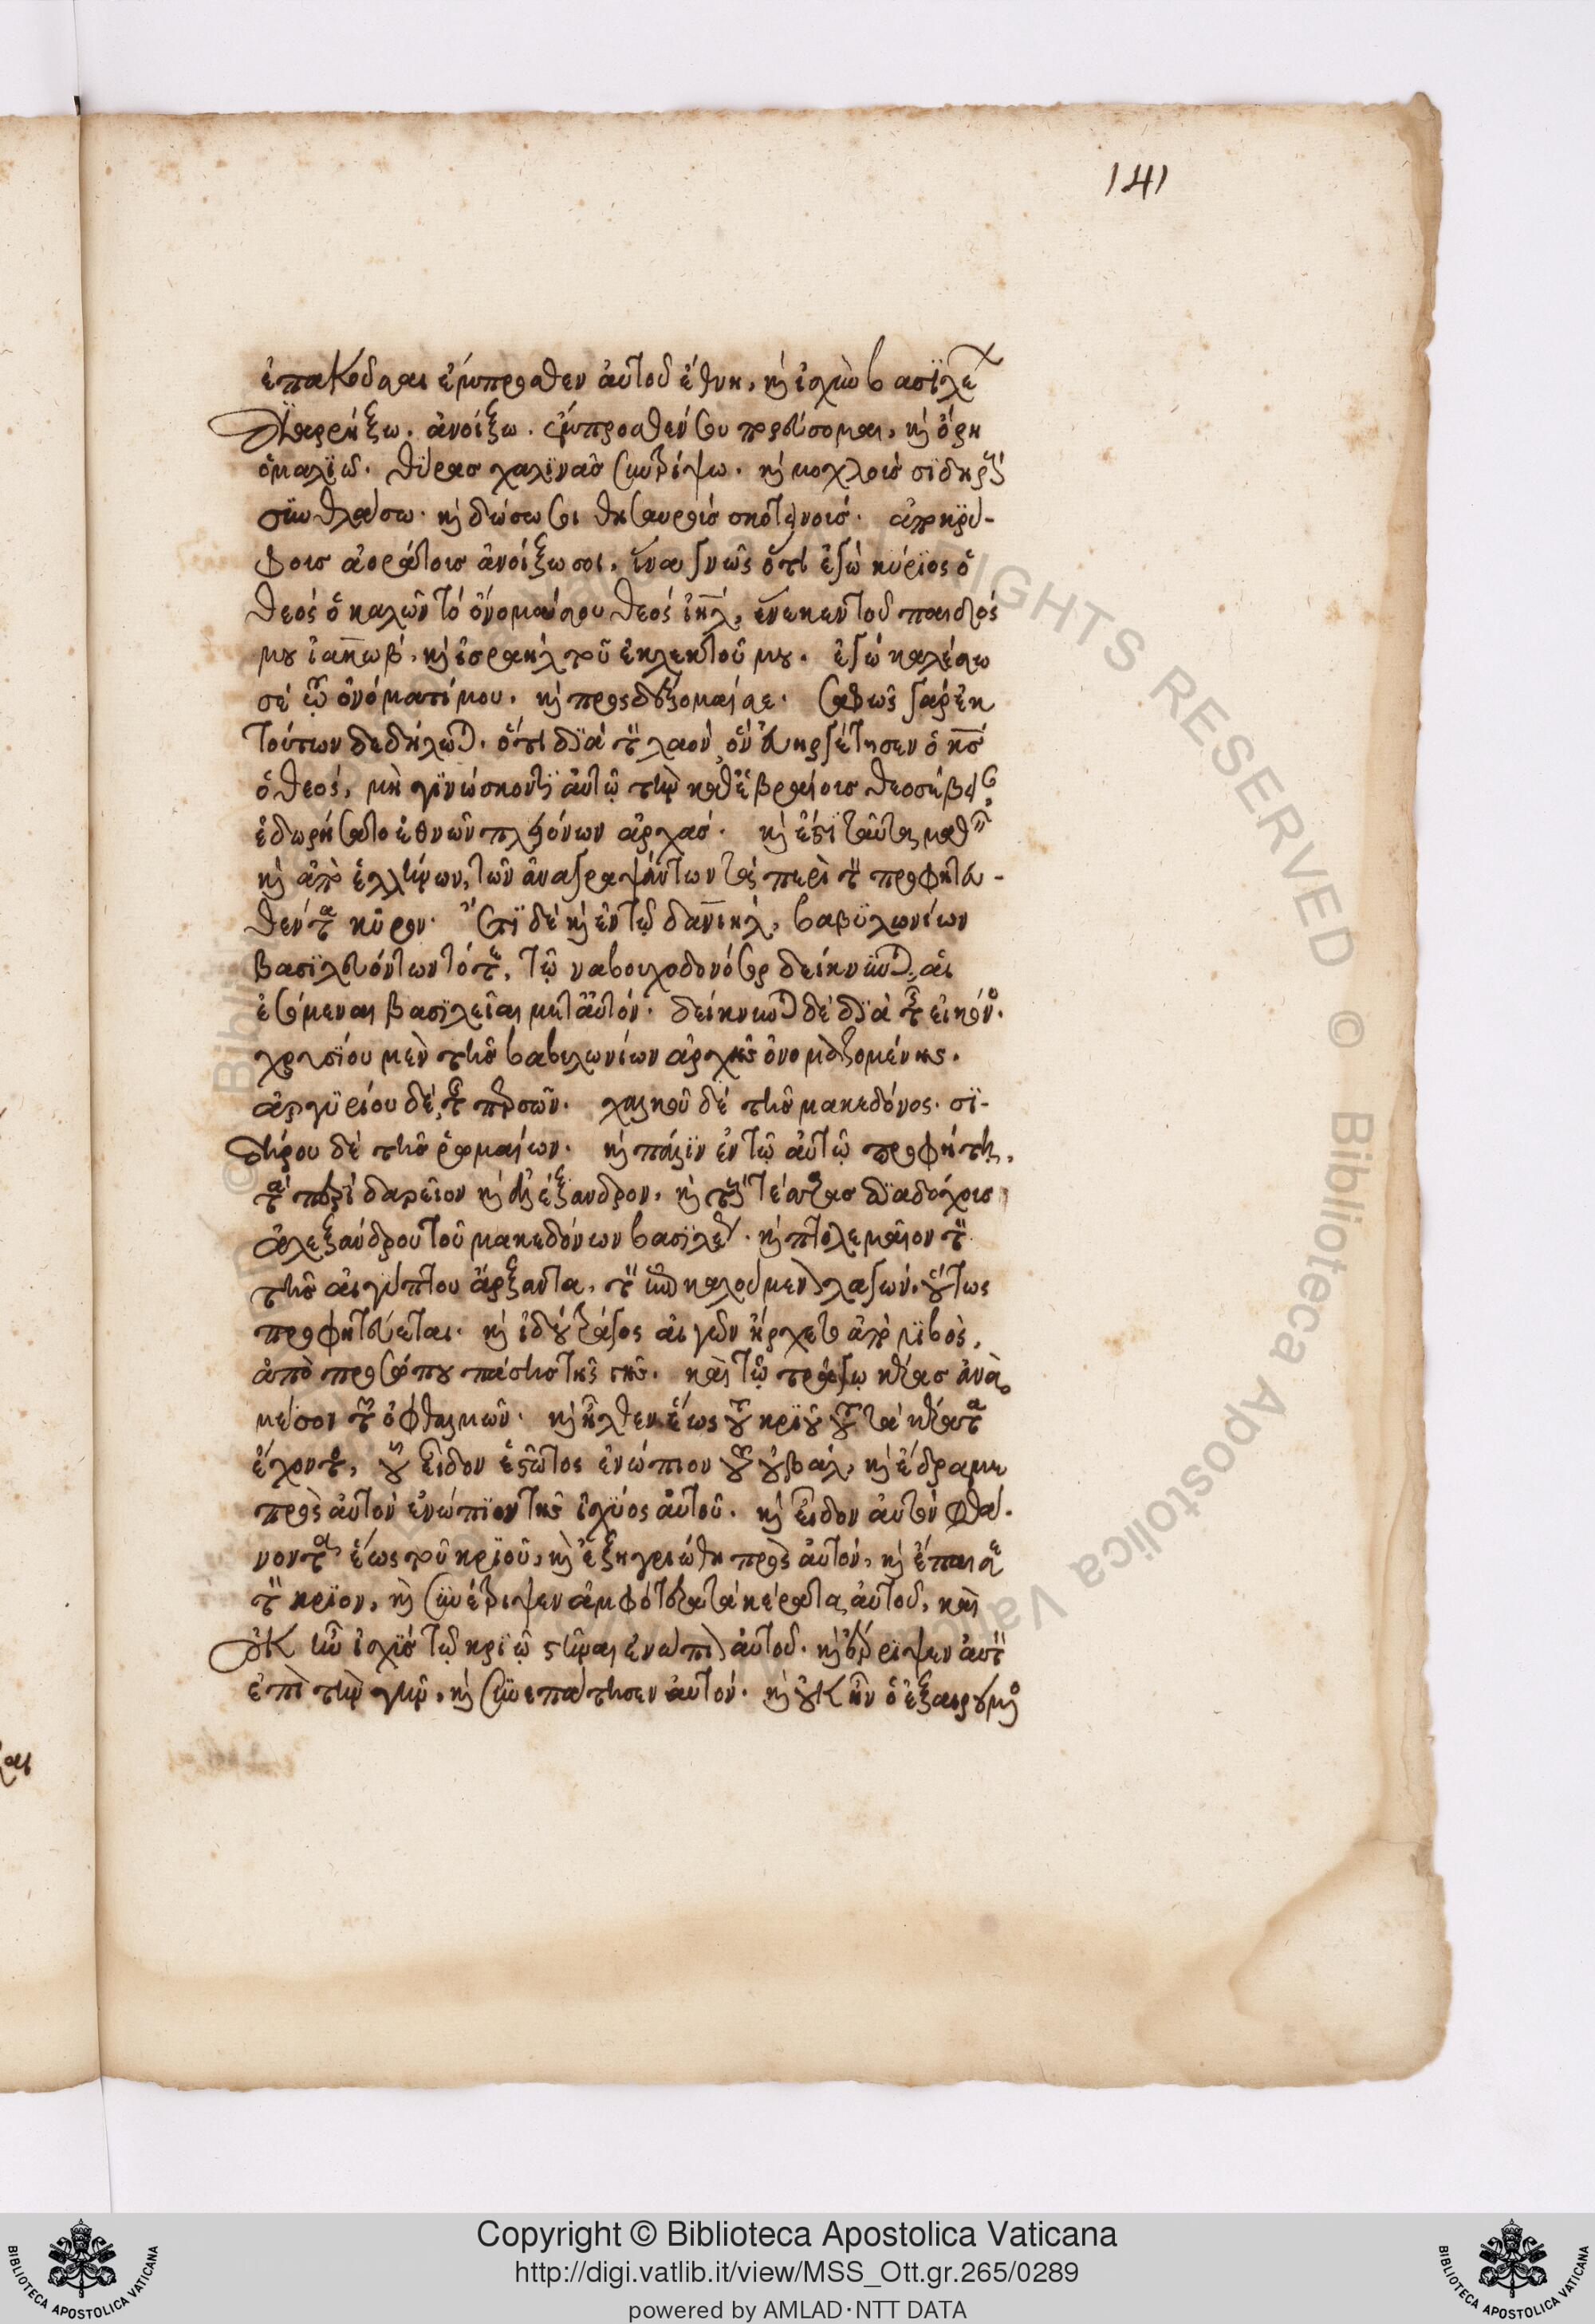 141
ἐπακοῦσαι ἔμπροσθεν αὐτοῦ ἔθνη, καὶ ἰσχὺν βασιλέων
διαρρήξω. ἀνοίξω. ἔμπροσθέν σου πορεύσομαι, καὶ ὄρη
ὁμαλιῶ. θύρας χαλκᾶς συντρίψω. καὶ μοχλοὺς σιδηροῦς
συνθλάσω. καὶ δώσω σοι θησαυροὺς σκοτεινούς. ἀποκρύ-
φους ἀοράτους ἀνοίξω σοι, ἵνα γνῷς ὅτι ἐγὼ κύριος ὁ
θεός ὁ καλῶν τὸ ὄνομά σου θεός ἰηλ, ἕνεκεν τοῦ παιδός
μου ἰακωβ, καὶ ἰσραὴλ τοῦ ἐκλεκτοῦ μου. ἐγώ καλέσω
σέ τῷ ὀνόματί μου. καὶ προσδέξομαί σε. σαφῶς γὰρ ἐκ
τούτων δεδήλωται. ὅτι διὰ τὸν λαὸν, ὃν ὁ κς
ὁ θεός, μὴ γινώσκοντι αὐτῷ τὴν καθ' ἑβραίους θεοσέβειαν
ἐδωρήσατο ἐθνῶν πλειόνων ἀρχάς. καὶ ἔστι ταῦτα μαθεῖν
καὶ ἀπὸ ἑλλήνων, τῶν ἀναγραψάντων τὰς περὶ τὸν προφητευ-
θέντα κῦρον. ἔτι δὲ καὶ ἐν τῷ δανιηλ, βαβυλωνίων
βασιλευόντων τότε, τῷ ναβουχοδονόσορ δείκνυται αἱ
ἐσόμεναι βασιλεῖαι μετ' αὐτόν. δείκνυται δὲ διὰ τῆς εἰκόνος.
χρυσίου μὲν τῆς βαβυλωνίων ἀρχῆς ὀνομαζομένης.
ἀργυρίου δὲ, τῆς περσῶν. χαλκοῦ δὲ τῆς μακεδόνος. σι-
δήρου δὲ τῆς ῥωμαίων. καὶ πάλιν ἐν τῷ αὐτῷ προφήτῃ,
τὰ περὶ δαρεῖον καὶ ἀλέξανδρον, καὶ τοὺς τέσσαρας διαδόχους
ἀλεξάνδρου τοῦ μακεδόνων βασιλέως. καὶ πτολεμαῖον τὸν
τῆς αἰγύπτου ἄρξαντα, τὸν ἐπικαλούμενον λαγών. οὕτως
προφητεύεται. καὶ ἰδοὺ τράγος αἰγῶν ἤρχετο ἀπὸ λιβὸς,
ἀπὸ προσώπου πάσης τῆς γῆς. καὶ τῷ τράγῳ κέρας ἀνὰ
μέσον τῶν ὀφθαλμῶν. καὶ ἦλθεν ἕως τοῦ κριοῦ τοῦ τὰ κέρατα
ἔχοντος, οὗ εἶδον ἑστῶτος ἐνώπιον τοῦ οὐβάλ, καὶ ἔδραμε
πρὸς αὐτὸν ἐνώπιον τῆς ἰσχύος αὐτοῦ. καὶ εἶδον αὐτὸν φθά-
νοντα ἕως τοῦ κριοῦ, καὶ ἐξηγριώθη πρὸς αὐτόν, καὶ ἔπαισε
τὸν κριὸν, καὶ συνέτριψεν ἀμφότερα τὰ κέρατα αὐτοῦ, καὶ
οὐκ ἦν ἰσχὺς τῷ κριῷ στῆναι ἐνώπιον αὐτοῦ. καὶ ἔρριψεν αὐτὸν
ἐπὶ τὴν γῆν, καὶ συνεπάτησεν αὐτόν. καὶ οὐκ ἦν ὁ ἐξαιρούμενος
© Biblioteca Apostolica Vaticana
ALL RIGHTS RESERVED © Biblioteca Apostolica Vaticana
Copyright © Biblioteca Apostolica Vaticana
http://digi.vatlib.it/view/MSS_Ott.gr.265/0289
powered by AMLAD·NTT DATA
BIBLIOTECA APOSTOLICA VATICANA
BIBLIOTECA APOSTOLICA VATICANA